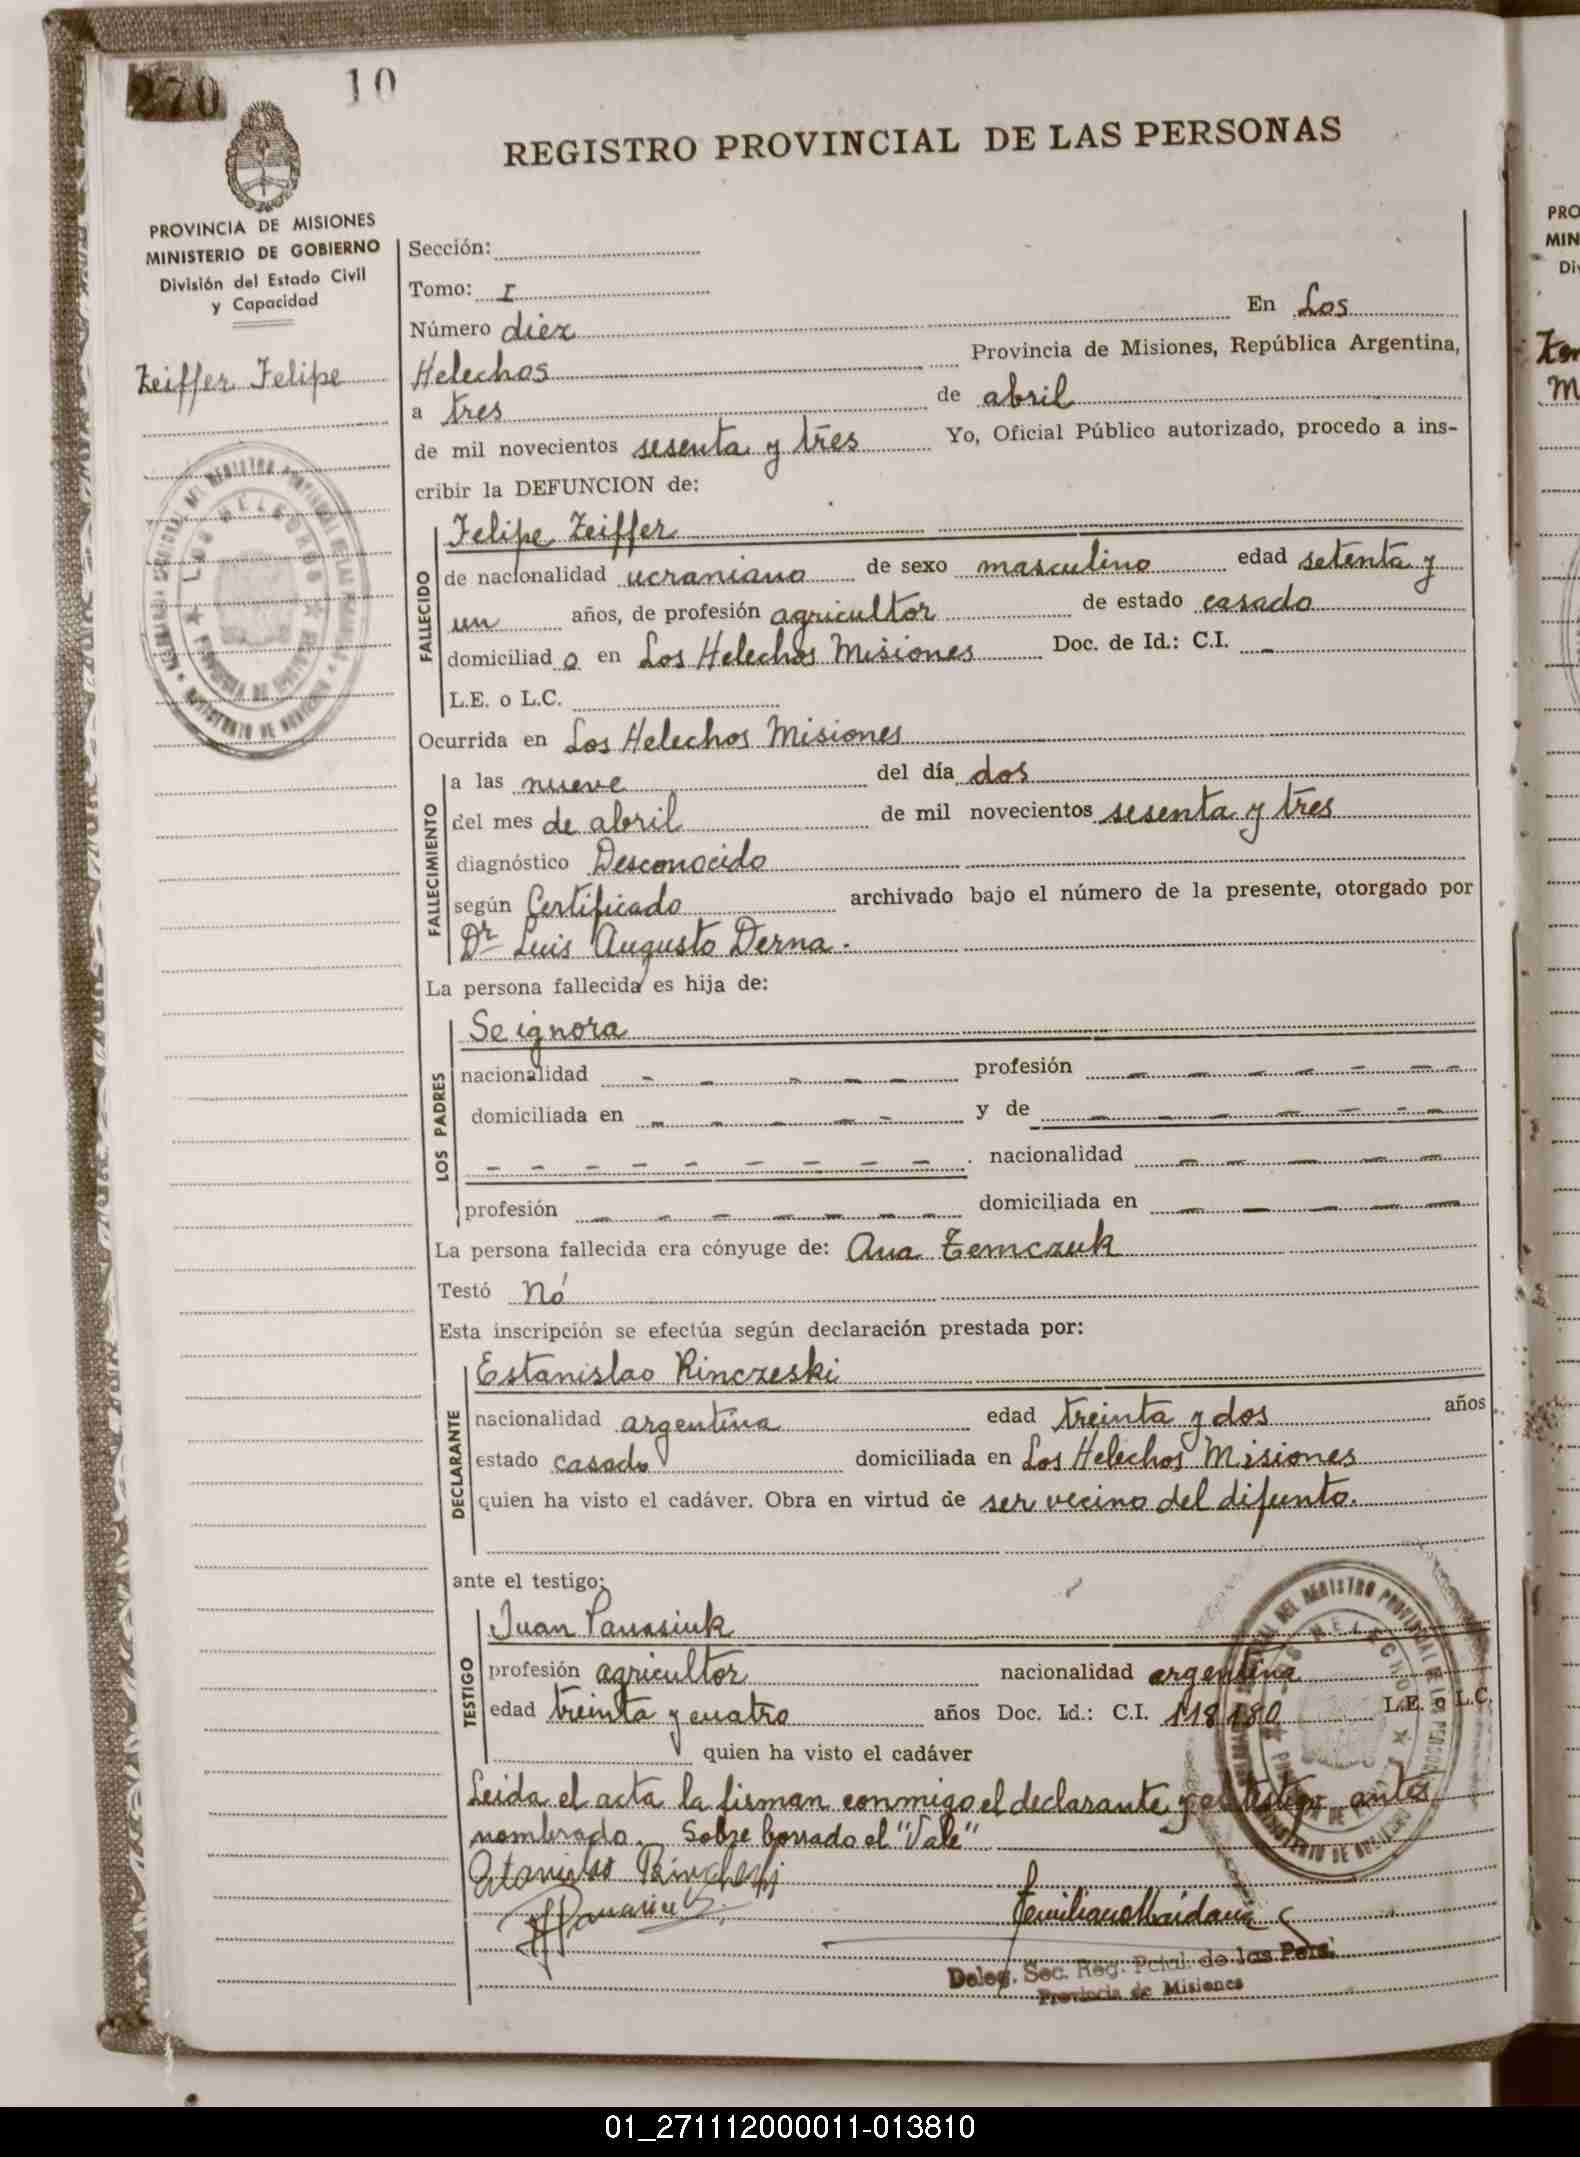 270 10
REGISTRO PROVINCIAL DE LAS PERSONAS
PROVINCIA DE MISIONES
MINISTERIO DE GOBIERNO
División del Estado Civil
y Capacidad
Zeiffer Felipe
Sección:
Tomo: I
Número diez En Los
Helechos Provincia de Misiones, República Argentina,
a tres de abril
de mil novecientos sesenta y tres Yo, Oficial Público autorizado, procedo a ins-
cribir la DEFUNCION de:
FALLECIDO
Felipe Zeiffer
de nacionalidad ucraniano de sexo masculino edad setenta y
un años, de profesión agricultor de estado casado
domiciliad o en Los Helechos Misiones Doc. de Id.: C.I. -
L.E. o L.C.
Ocurrida en Los Helechos Misiones
FALLECIMIENTO
a las nueve del día dos
del mes de abril de mil novecientos sesenta y tres
diagnóstico Desconocido
según Certificado archivado bajo el número de la presente, otorgado por
Dr Luis Augusto Derna.
La persona fallecida es hija de:
LOS PADRES
Se ignora
nacionalidad - - - - - profesión - - - - - - -
domiciliada en - - - - - y de - - - - - - -
- - - - - - - - - nacionalidad - - - - -
profesión - - - - - - - domiciliada en - - - - -
La persona fallecida era cónyuge de: Ana Zemczuk
Testó nó
Esta inscripción se efectúa según declaración prestada por:
DECLARANTE
Estanislao Rinczeski
nacionalidad argentina edad treinta y dos años
estado casado domiciliada en Los Helechos Misiones
quien ha visto el cadáver. Obra en virtud de ser vecino del difunto.
ante el testigo:
TESTIGO
Juan Panasiuk
profesión agricultor nacionalidad argentina
edad treinta y cuatro años Doc. Id.: C.I. 118180 L.E. o L.C.
quien ha visto el cadáver
Leida el acta la firman conmigo el declarante y el testigo antes
nombrado. Sobre borrado el "Vale"
Deleg. Sec. Reg. Pcial. de las Pers.
Provincia de Misiones
PRO
MIN
01_271112000011-013810